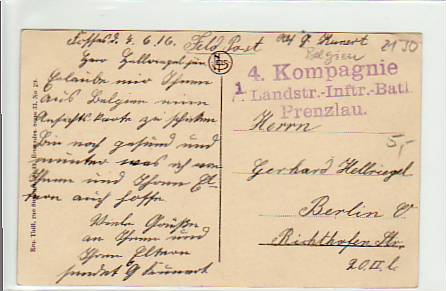 Fosses d. 4. 6. 16. Feld Post
Herr Hellriegel für
Erlaube mir Ihnen
aus Belgien eine
Ansichts Karte zu schicken
Bin noch gesund und
munter was ich von
Ihnen und Ihren El-
tern auch hoffe
Viele Grüße
an Ihnen und
Ihre Eltern
sendet G Kunert
Abs G. Kunert
Belgien
2130
4. Kompagnie
1. Landstr.-Inftr.-Batl.
Prenzlau.
Herrn
5,-
Gerhard Hellriegel
Berlin O
Richthofen Str.
20 II l.